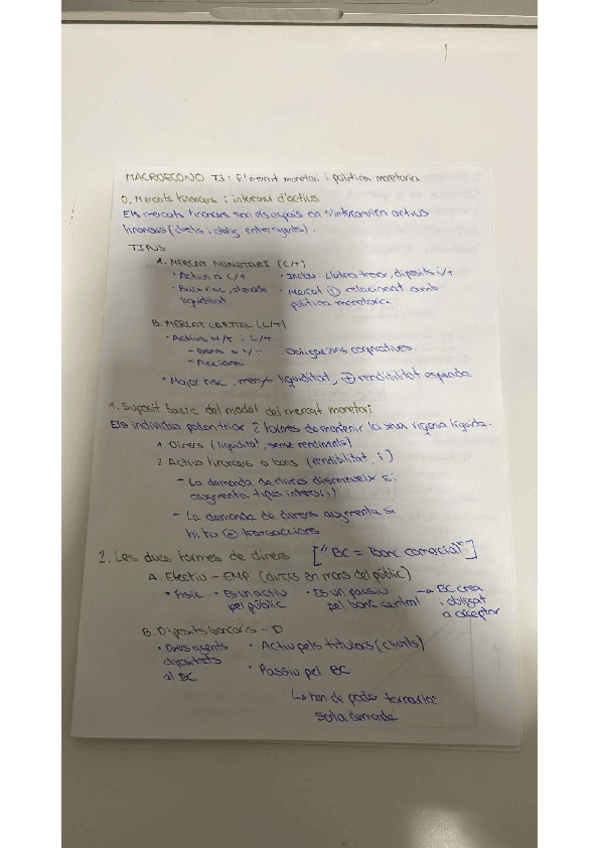 MACROECONO T3: El mercat monetari i política monetaria
0. Mercats financers: intercanvi d'actius
Els mercats financers son els espais on s'intercanvien actius
financers (drets i oblig. entre agents).
TIPUS
A. MERCAT MONETARI (C/T)
· Actius a C/T
· Baix risc, elevada
liquiditat
· Inclou: Lletres tresor, diposits c/t
· Mercat + relacionat amb
política monetaria
B. MERCAT CAPITAL (L/T)
· Actius M/T i L/T
- Bons a
- Accions
Obligacions corporatives
· Major risc, menys liquiditat, + rendibilitat esperada
1. Suposit basic del model del mercat monetari
Els individus poden triar 2 formes de mantenir la seva riquesa líquida.
1. Diners (liquiditat, sense rendiments)
2. Actius financers o bons (rendibilitat, i)
- La demanda de diners disminueix si
augmenta tipus interes (i)
- La demanda de diners augmenta si
hi ha + transaccions
2. Les dues formes de diners ["BC = Banc comercial"]
A. Efectiu - EMP (diners en mans del públic)
· Físic
· Es un actiu
pel públic
· Es un passiu
pel banc central
→ BC crea
i obligat
a acceptar
B. Diposits bancaris - D
· Diners agents
dipositats
al BC
· Actiu pels titulars (clients)
· Passiu pel BC
↳ han de poder tornar-los
sota demanda